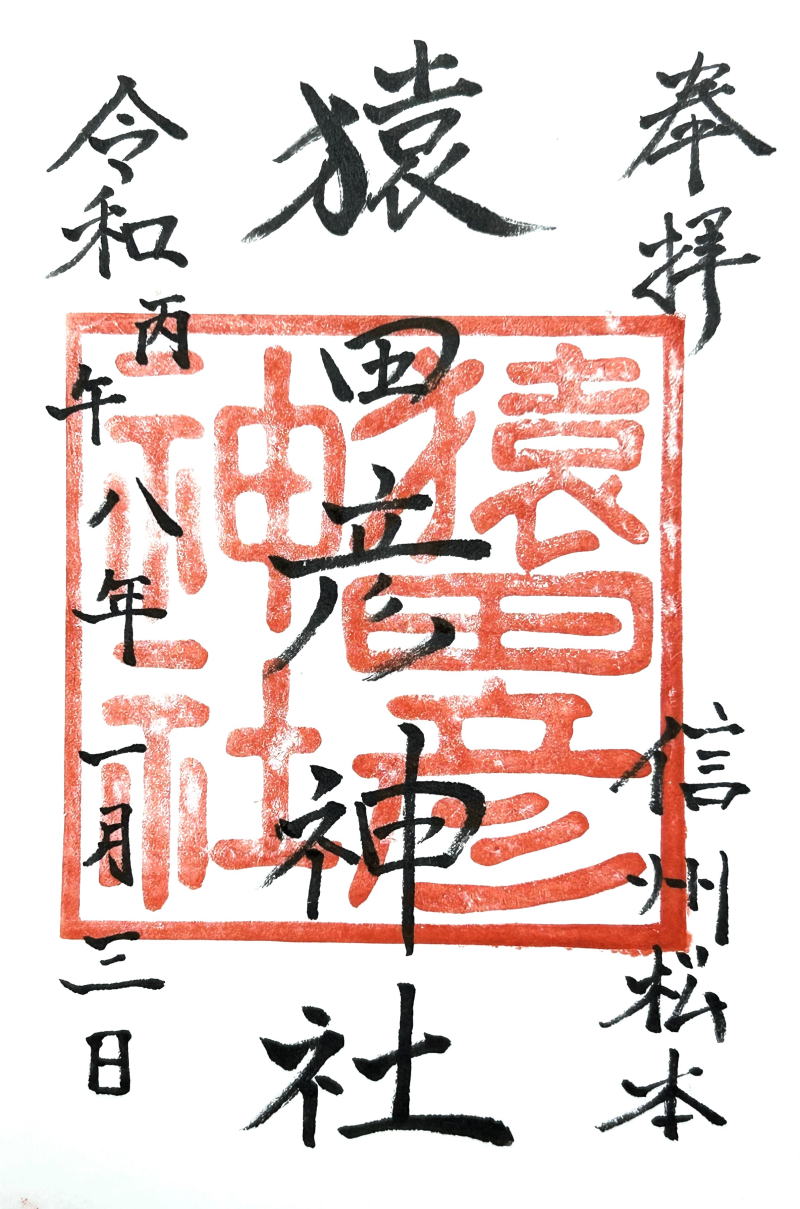 奉拝
信州松本
猿田彦神社
令和丙午八年一月三日
猿田彦
神社